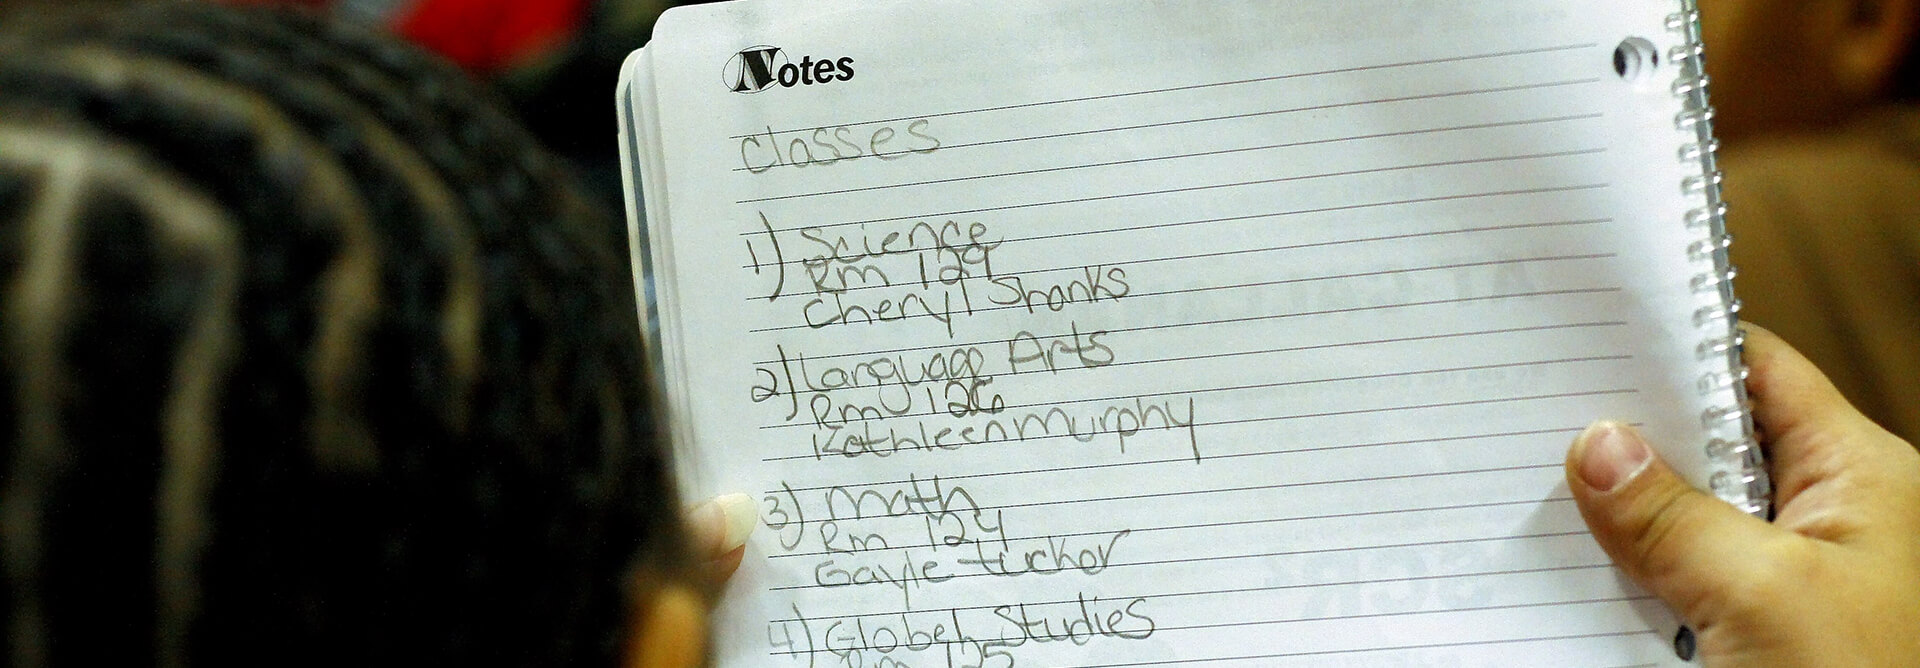 Notes
classes
1) Science
Rm 129
Cheryl Shanks
2) Language Arts
Rm 126
Kathleen Murphy
3) Math
Rm 124
Gayle tucker
4) Globel Studies
Rm 125